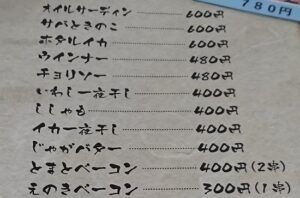 780円
オイルサーディン 600円
サバときのこ 600円
ホタルイカ 600円
ウインナー 480円
チョリソー 480円
いわし一夜干し 400円
ししゃも 400円
イカ一夜干し 400円
じゃがバター 400円
とまとベーコン 400円(2本)
えのきベーコン 300円(1本)